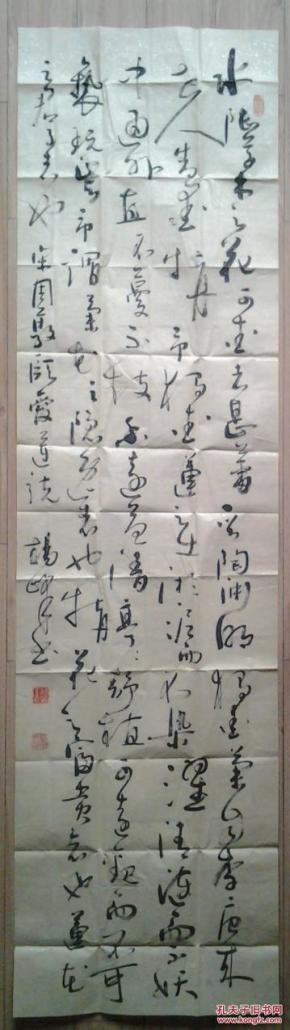 水陆草木之花可爱者甚蕃晋陶渊明独爱菊自李唐来
世人甚爱牡丹予独爱莲之出淤泥而不染濯清涟而不妖
中通外直不蔓不枝香远益清亭亭静植可远观而不可
亵玩焉予谓菊花之隐逸者也牡丹花之富贵者也莲花
之君子者也宋周敦颐爱莲说
孔夫子旧书网